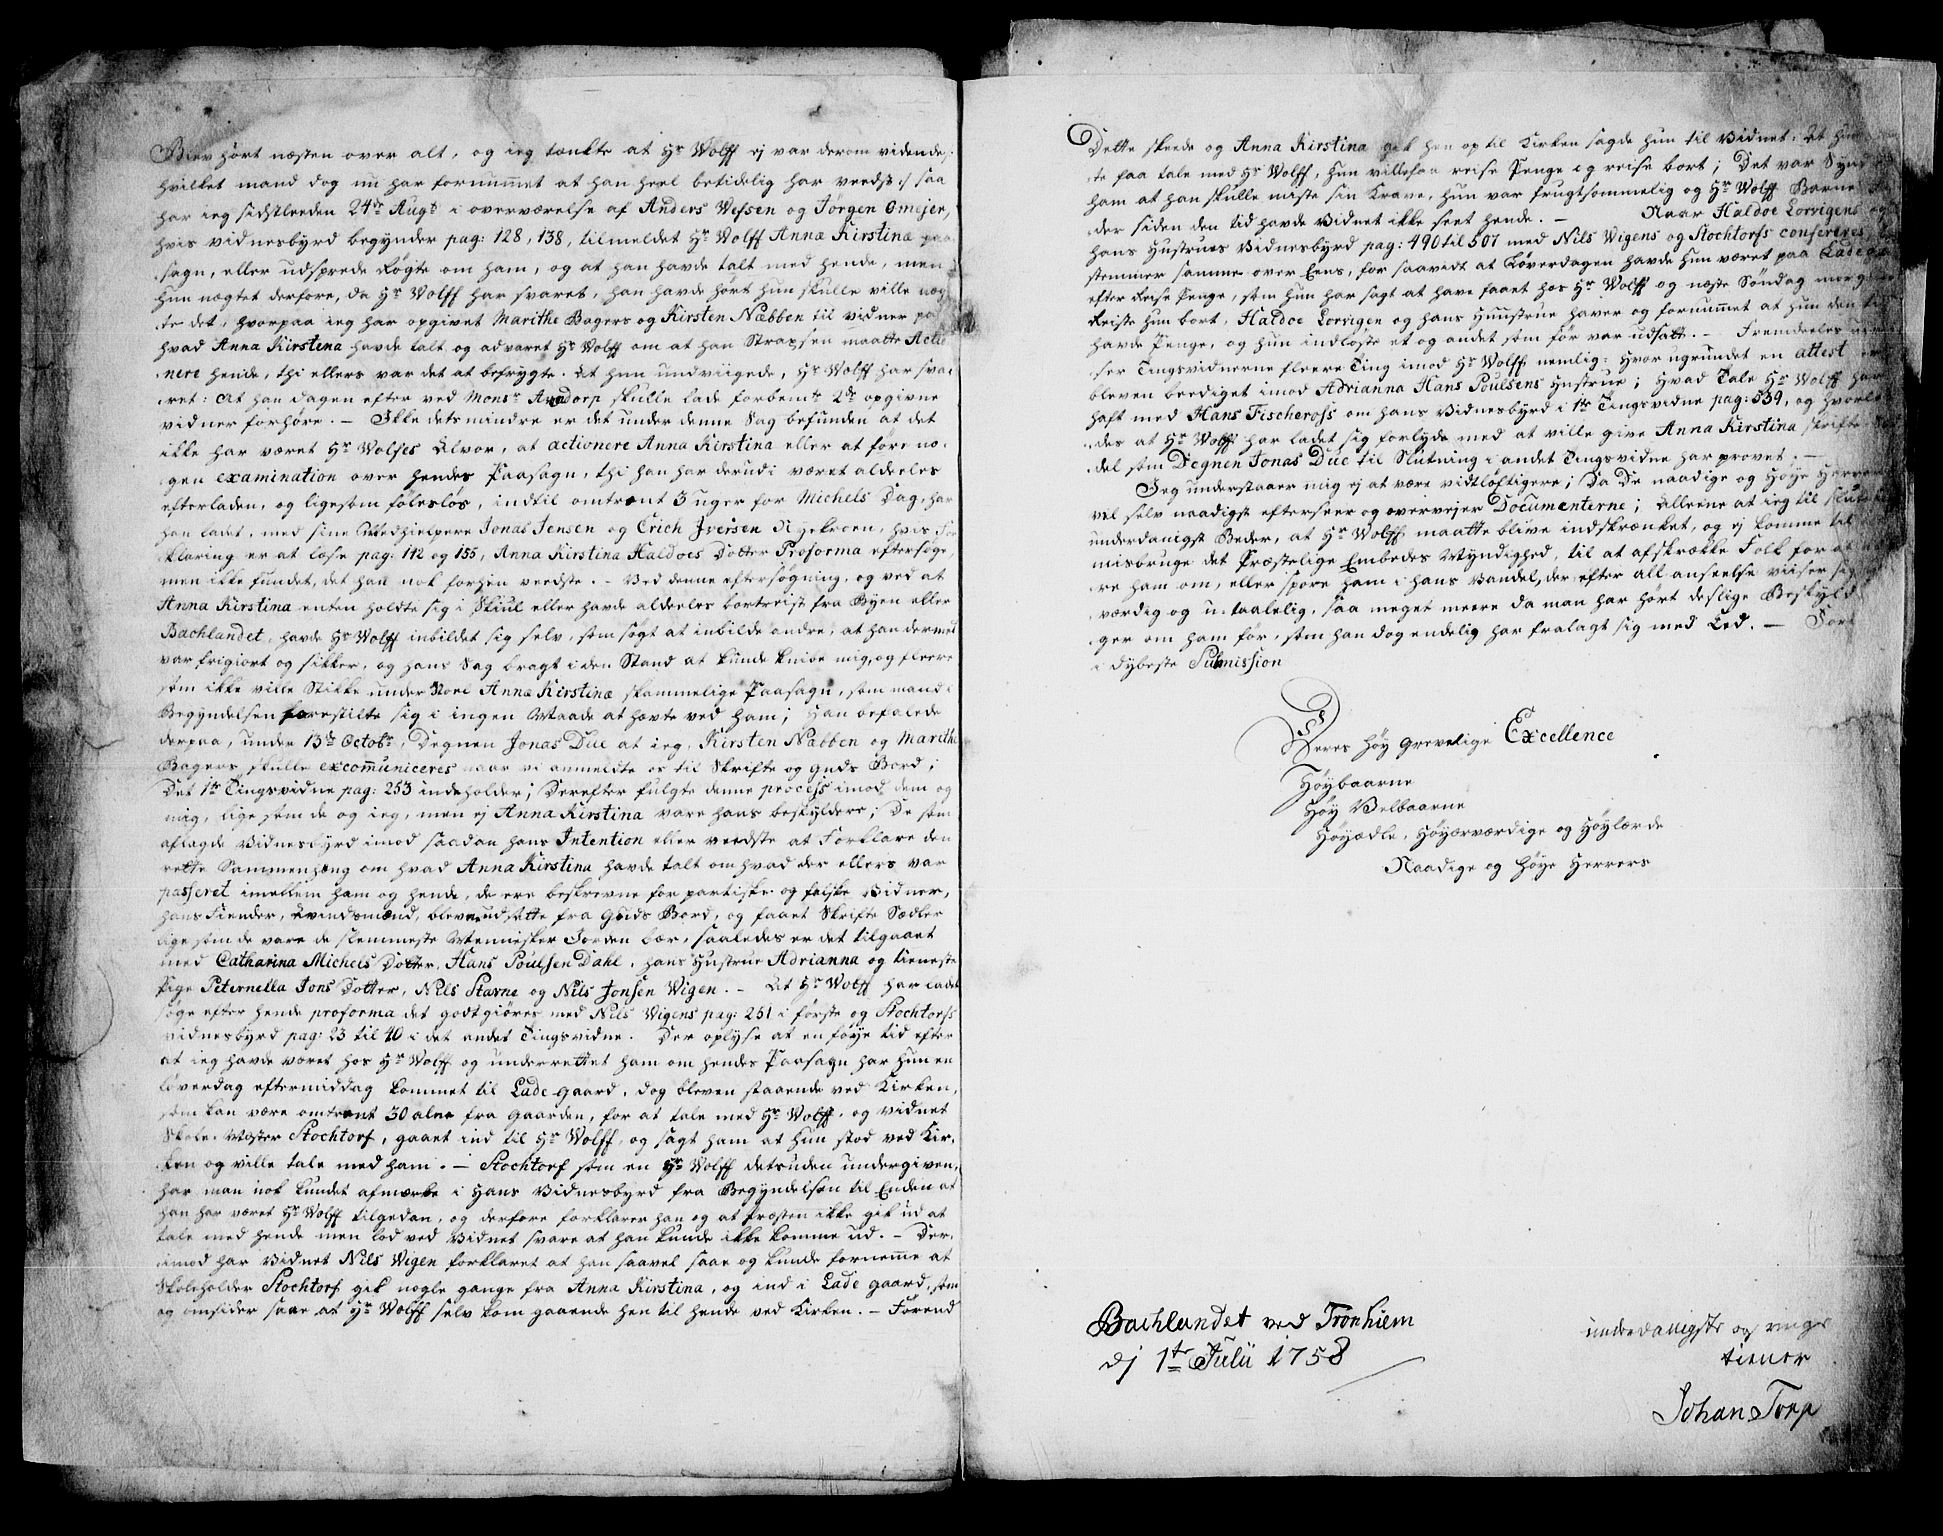 Blev hørt næsten over alt, og ieg tænkte at Hr Wolff ej var derom vidende,
hvilket mand dog nu har fornummet at han heel betidelig har veedst :/ saa
har ieg sidstleeden 24de Augt i overværelse af Anders Wefsen og Jørgen Omejer,
hvis vidnesbyrd begynder pag: 128, 138, tilmeldet Hr Wolff Anna Kirstinæ paa-
sagn, eller udsprede Røgte om ham, og at han havde talt med hende, men
hun nægtet derfore, da Hr Wolff har svaret, han havde hørt hun skulle ville næg-
te det, hvorpaa ieg har opgivet Marithe Bagers og Kirsten Næbben til vidner paa
hvad Anna Kirstena havde talt og advaret Hr Wolff om at han Strax sen maatte Actio
nere hende, thi ellers var det at befrygte, at hun undviigede, Hr Wolff har sva-
ret: at han dagen efter ved Monsr Arndorp skulle lade forbemte 2de opgivne
vidner forhøre. - Ikke detsmindre er det under denne Sag befunden at det
ikke har været Hr Wolfes Alvor, at actionere Anna Kirstina eller at føre no-
gen examination over hendes Paasagn, thi han har derudi været aldeeles
efterladen, og ligesom følesløs, indtil omtrent 3 uger for Michels Dag, har
han ladet, med sine Medhielpere Jonas Jensen og Erich Iversen Nyekroen, hvis For-
klaring er at læse pag: 142 og 155, Anna Kirstina Haldoes Dotter Proforma eftersøge,
men ikke fundet, det han nok forhen veedste. - Ved denne eftersøgning, og ved at
Anna Kirstina enten holdte sig i Skiul eller havde aldeeles bortreist fra Byen eller
Bachlandet, havde Hr Wolff inbildet sig selv, som søgt at inbilde andre, at han dermed
var frigiort og sikker, og hans Sag bragt i den Stand at kunde knibe mig, og fleere
som ikke ville Stikke under Stoel Anna Kirstinæ skammelige Paasagn, som mand i
Begyndelsen forestilte sig i ingen Maade at hæfte ved ham; Han befalede
derpaa, under 13de Octobr, Degnen Jonas Due at ieg, Kirsten Næbben og Marithe
Bagers skulle excommuniceres naar vi anmeldte os til Skrifte og Guds Bord;
Det 1te Tingsvidne pag: 253 indeholder; Derefter fulgte denne process imod dem og
mig, lige som de og ieg, men ej Anna Kirstina vare hans beskyldere; De som
aflagde Vidnesbyrd imod saadan hans Intention eller veedste at Forklare den
rette Sammenheng om hvad Anna Kirstina havde talt om hvad der ellers var
passeret imellem ham og hende, de ere beskrevne for partiske og falske Vidner,
hans Fiender, Avindsmænd, bleven udsatte fra Guds Bord, og faaet Skrifte Sædler
lige som de vare de slemmeste Mennisker Jorden bær, saaledes er det tilgaaet
med Catharina Michels Dotter, Hans Poulsen Dahl, hans Hustrue Adrianna og tieneste
Pige Peternella Jons Dotter, Nils Stavne og Nils Jonsen Wigen. - At Hr Wolff har ladet
søge efter hende proforma det godtgiøres med Nils Wigens pag: 251 i første og Stochtorfs
vidnesbyrd pag: 23 til 40 i det andet Tingsvidne. Der oplyse at en føye tid efter
at ieg havde været hos Hr Wolff og underrettet ham om hendes Paasagn har hun en
løverdag eftermiddag kommet til Lade gaard, dog bleven staaende ved Kirken,
som kan være omtrent 30 alne fra gaarden, for at tale med Hr Wolff, og vidnet
Skole-Mester Stochtorf, gaaet ind til Hr Wolff, og sagt ham at hun stod ved Kir-
ken og ville tale med ham. - Stochtorf som en Hr Wolff detsuden undergiven,
har man nok kundet afmærke i Hans Vidnesbyrd fra Begyndelsen til Enden at
han har været Hr Wolff tilgedan, og derfore forklarer han og at Præsten ikke gik ud at
tale med hende men lod ved Vidnet svare at han kunde ikke komme ud. - Der-
imod har Vidnet Nils Wigen forklaret at han saavel saae og kunde fornemme at
Skoleholder Stochtorf gik nogle gange fra Anna Kirstina, og ind i Lade gaard, som
og omsider saae at Hr Wolff selv kom gaaende hen til hende ved Kirken. - Forend
Dette skeede og Anna Kirstina gik hen op til Kirken sagde hun til Vidnet: at hun
te faa tale med Hr Wolff, hun ville faa reise Penge og reise bort; Det var Synd
ham at han skulle miste sin Krave, hun var frugtsommelig og Hr Wolff Barne
der siden den tid havde Vidnet ikke seet hende. - Naar Haldoe Lorvigens og
hans Hustrues Vidnesbyrd pag: 490 til 507 med Nils Wigens og Stochtorfs confereres,
stemmer samme over Eens, for saavidt at Løverdagen havde hun været paa Lade
efter Reise Penge, som hun har sagt at have faaet hos Hr Wolff og næste Søndag morgen
Reiste hun bort, Haldoe Lorvigen og hans Huustrue haver og fornummet at hun den tid
havde Penge, og hun indløste et og andet som før var udsatt. - Fremdeeles
ser Tingsvidnerne fleere Ting imod Hr Wolff, nemlig: Hvor ugrundet en attest
bleven berediget imod Adrianna Hans Poulsens Hustrue; Hvad Tale Hr Wolff har
haft med Hans Fischeross om hans Vidnesbyrd i 1te Tingsvidne pag: 539, og hvorle-
des at Hr Wolff har ladet sig forlyde med at ville give Anna Kirstina skrifte
del som Degnen Jonas Due til Slutning i andet Tingsvidne har provet. -
Jeg understaaer mig ej at være vidtløftigere; Da De naadige og Høye Herrer
vil selv naadigst efterseer og overvejer Documenterne; Alleene at ieg til slut
underdanigst Beder, at Hr Wolff maatte blive indskrænket, og ej komme til
misbruge det Præstelige Embedes Myndighed, til at afskrække Folk for at
re ham om, eller spore ham i hans Vandel, der efter all anseelse viiser sig
værdig og u-taalelig, saa meget meere da man har hørt deslige Beskyld
ger om ham før, som han dog endelig har fralagt sig med Eed. -
i dybeste Submission
Deres Høy Grevelige Excellence
Høybaarne
Høy Velbaarne
Høyædle, Høyærværdige og Høylærde
Naadige og Høye Herrers
Bachlandet ved Tronhiem
dj 1te Julii 1758
underdanigste og ringe
tiener
Johan Torp